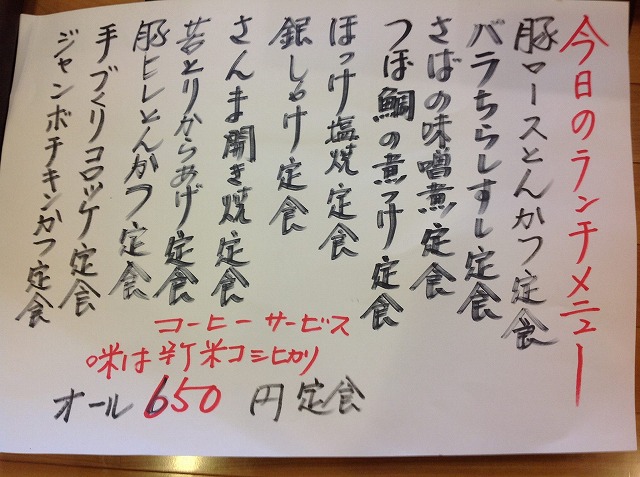 今日のランチメニュー
豚ロースとんかつ定食
バラちらしすし定食
さばの味噌煮定食
つぼ鯛の煮つけ定食
ほっけ塩焼定食
銀しゃけ定食
さんま開き焼定食
若とりからあげ定食
豚ヒレとんかつ定食
手づくりコロッケ定食
ジャンボチキンかつ定食
コーヒーサービス
米は新米コシヒカリ
オール650円定食